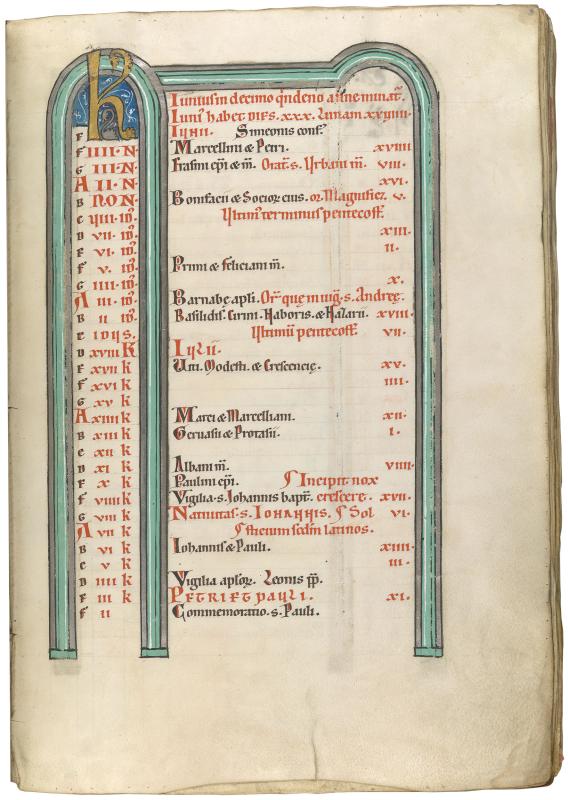 K
Iunius in decimo quindeno a fine minat.
F Iuni habet dies .xxx. Lunam xxviiii
IUNII. Simeonis conf.
F IIII N Marcellini & Petri. xviii
G III N Erasmi epi & m. Orat. s. Urbani m. viii.
A II N xvi.
B NON Bonifacii & Socior eius. or. Magnificet v.
C VIII ID Ultim terminus pentecost
D VII ID xiii.
E VI ID ii.
F V ID Primi & feliciani m.
G IIII ID x.
A III ID Barnabę apli. Or quę in uig. s. Andreę.
B II ID Basilidis. Cirini. Naboris. & Nazarii. xviii.
C IDUS. Ultimu pentecost. vii.
D XVIII K IULII.
E XVII K Uiti. Modesti. & Crescencię. xv.
F XVI K iiii.
G XV K
A XIIII K Marci & Marcelliani. xii.
B XIII K Geruasii & Protasii. i.
C XII K
D XI K Albani m. viiii.
E X K Paulini epi. Incipit nox
F VIIII K Vigilia. s. Iohannis bapt. crescere. xvii.
G VIII K Natiuitas. s. IOHANNIS. Sol vi.
A VII K sticium scdm latinos.
B VI K Iohannis & Pauli. xiiii.
C V K iii.
D IIII K Vigilia aplor. Leonis pp.
E III K PETRI ET PAULI. xi.
F II Commemoratio. s. Pauli.